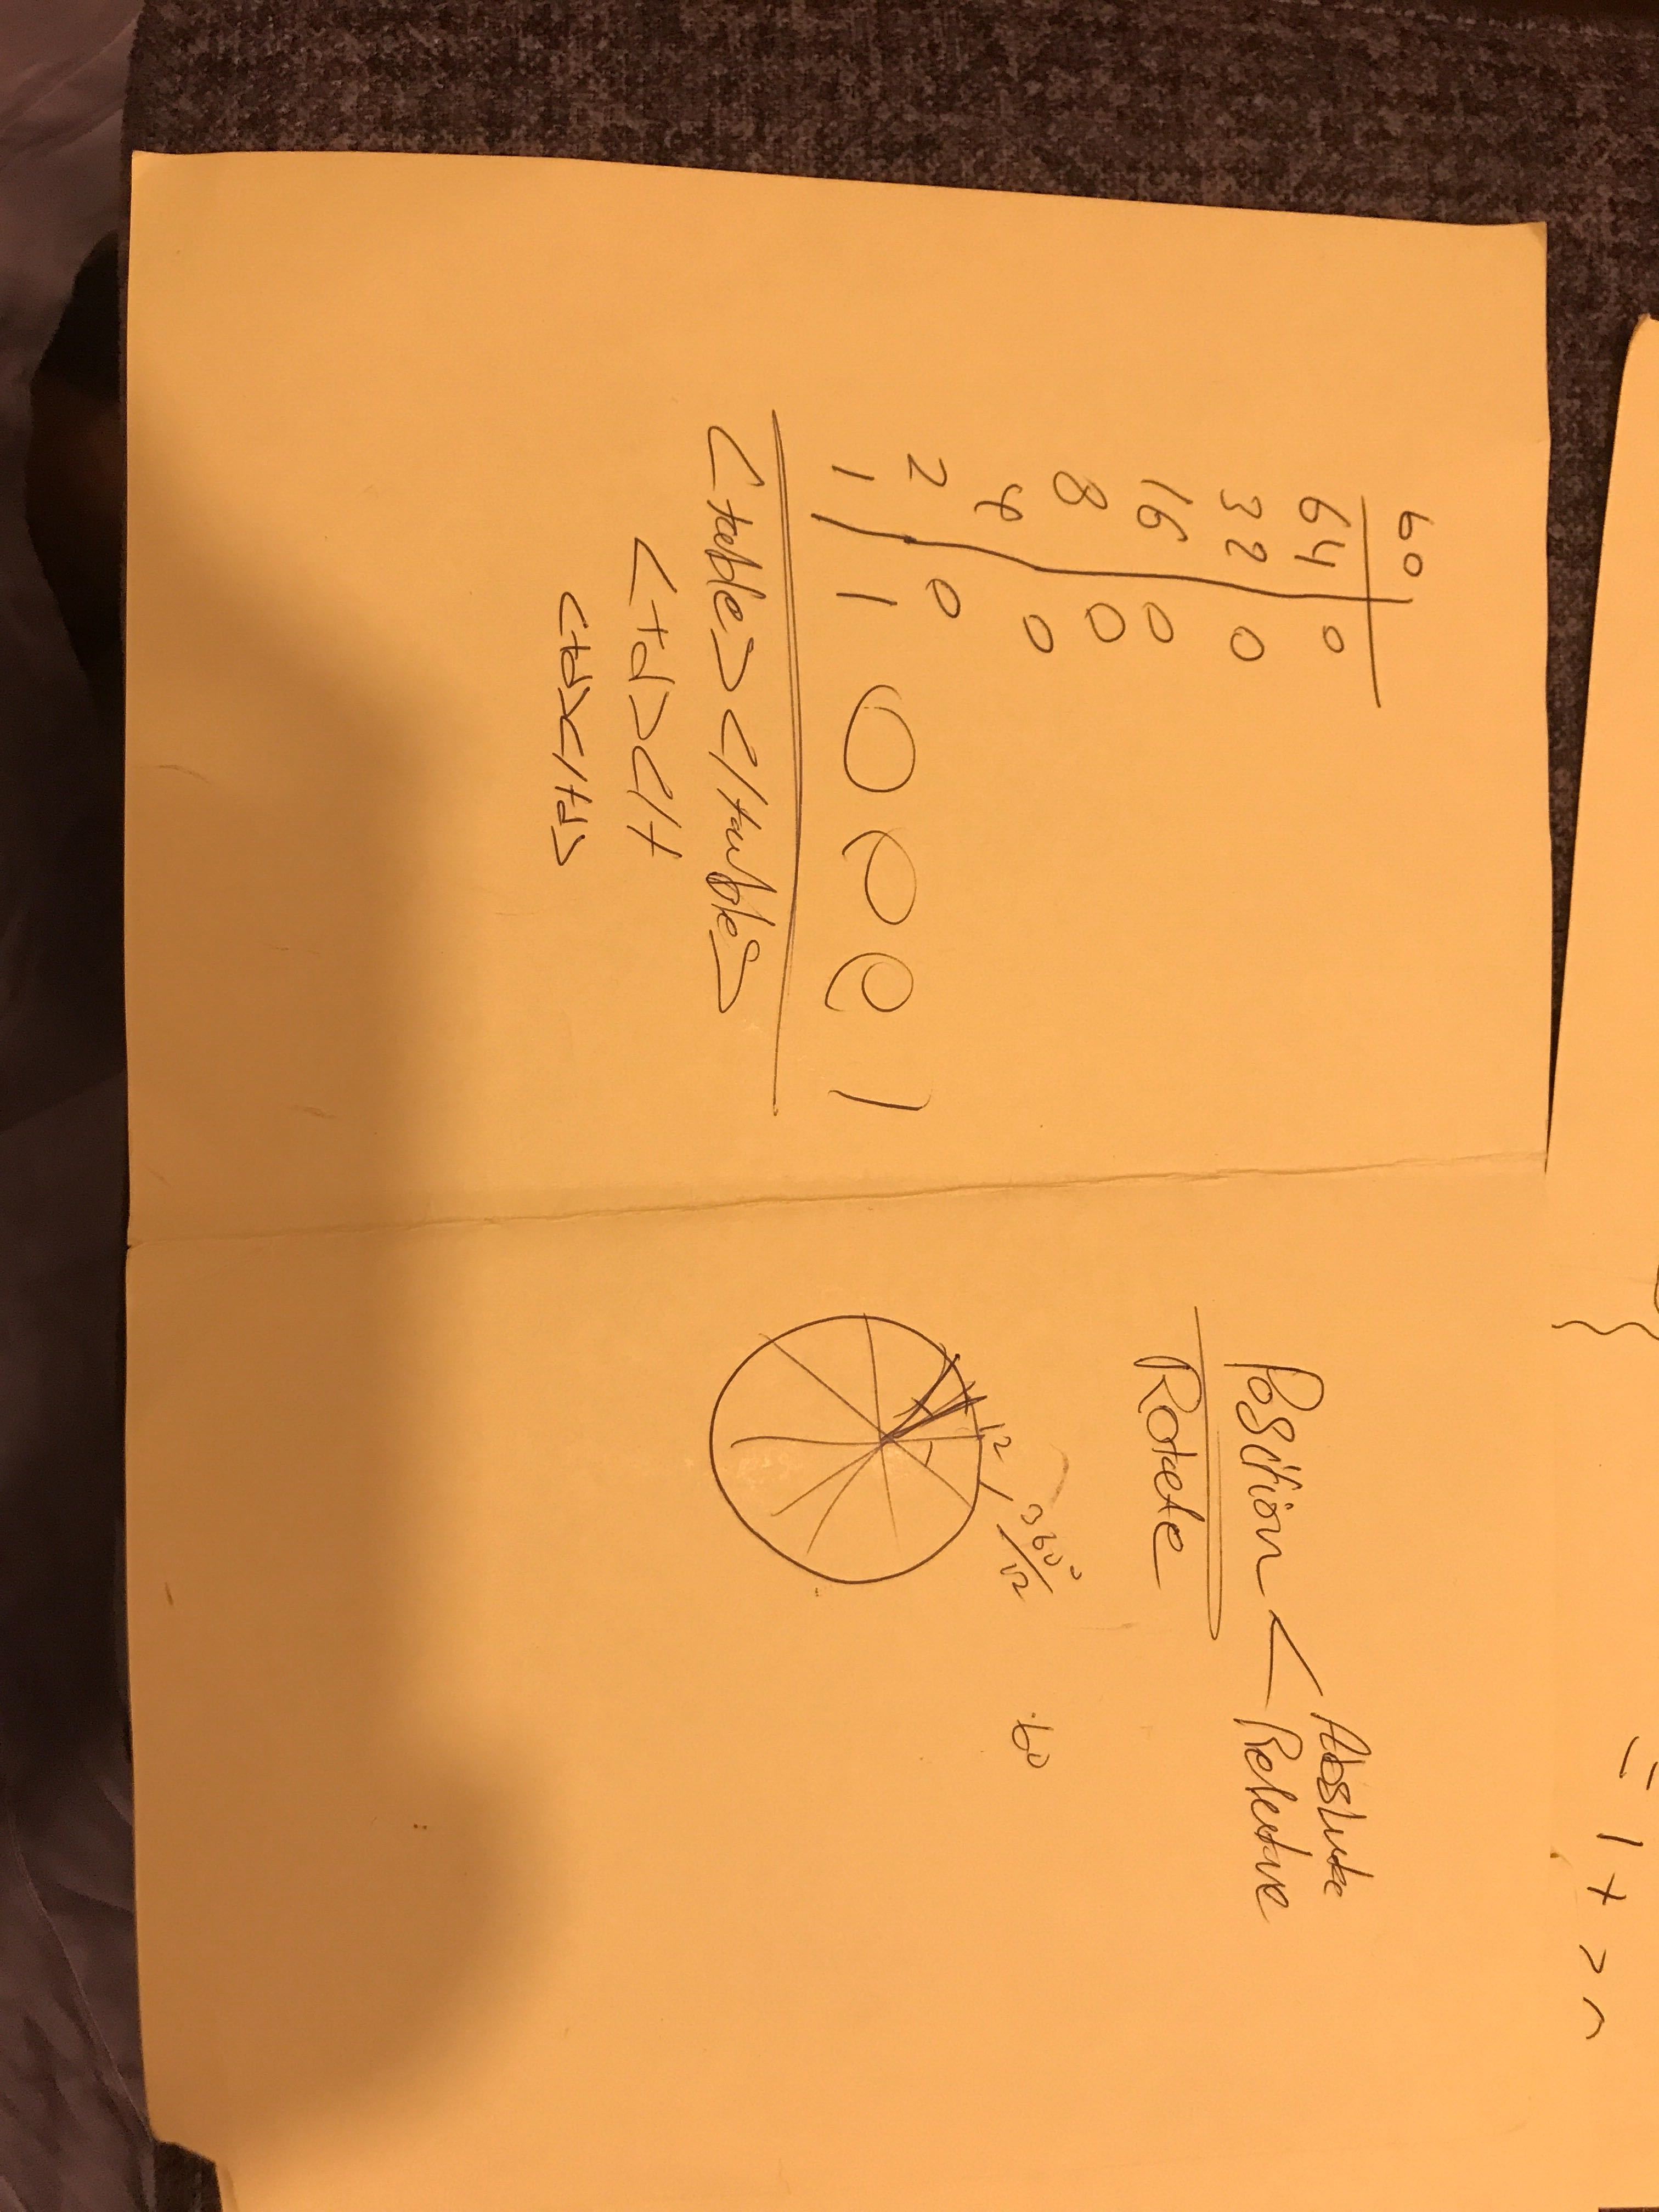 60
64 0
32 0
16 0
8 0
4 0
2 0
1 1 0 0 0 1
<table></table>
<td></t
<td></td>
Position < Absulute
Relative
Rotate
12
360°/12
60
= 1 +